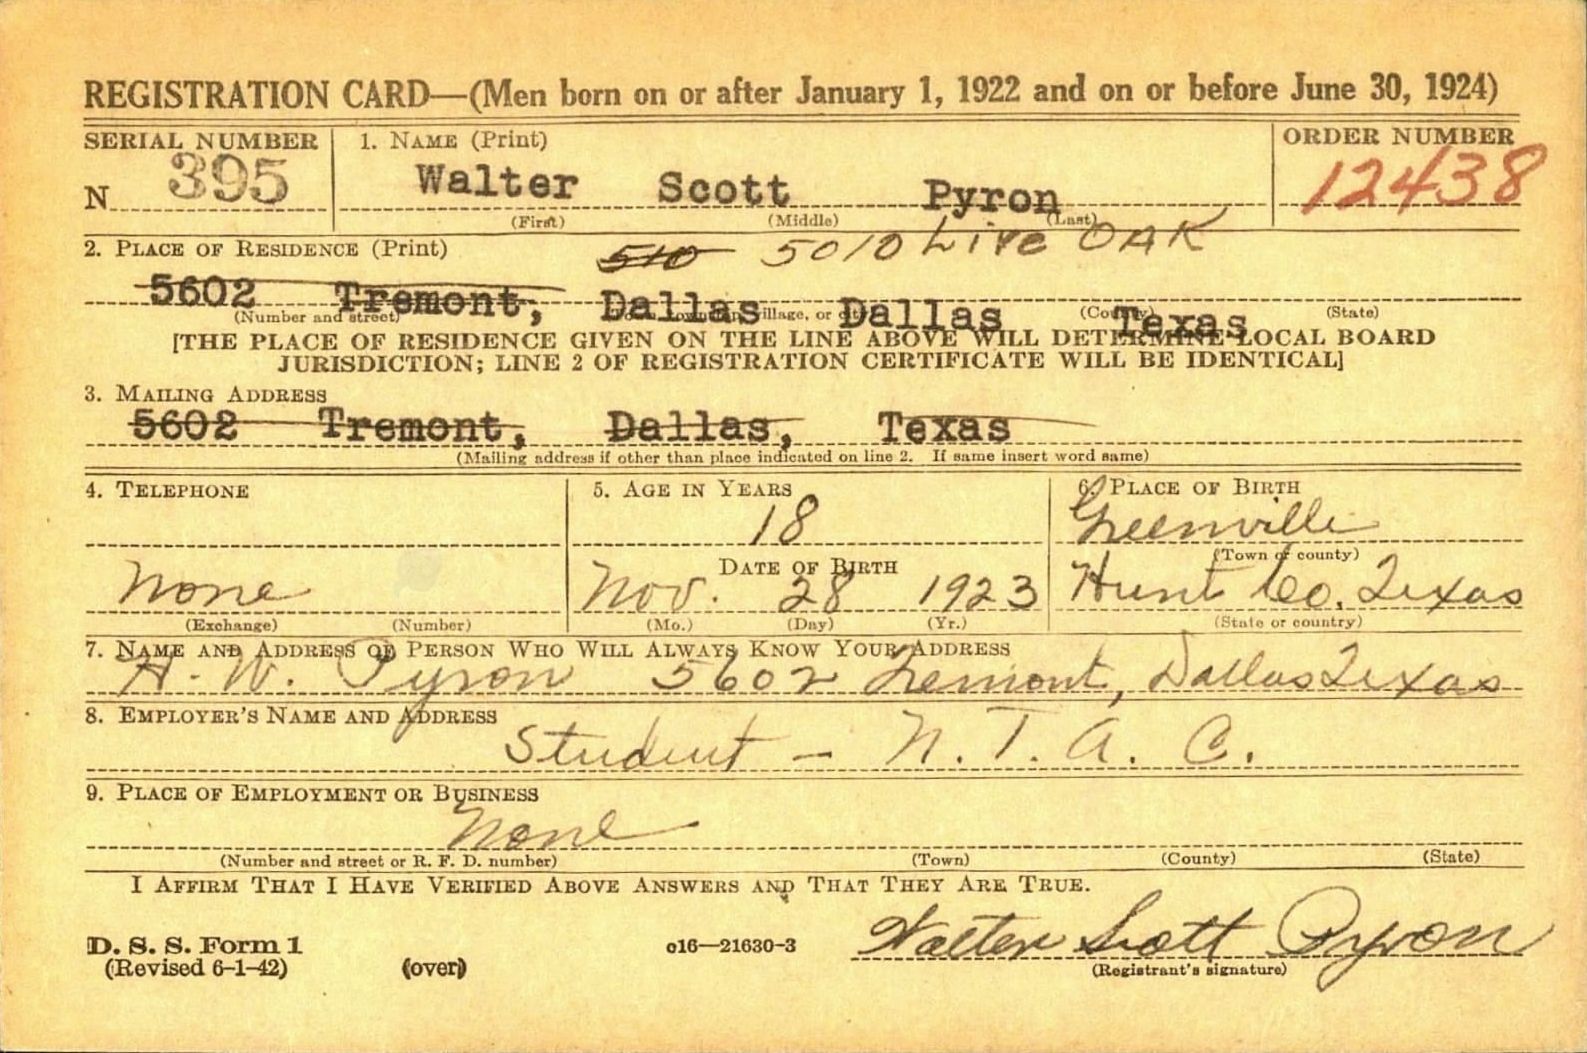 REGISTRATION CARD—(Men born on or after January 1, 1922 and on or before June 30, 1924)
SERIAL NUMBER 1. NAME (Print) ORDER NUMBER
N 395 Walter Scott Pyron 12438
(First) (Middle) (Last)
2. PLACE OF RESIDENCE (Print) 510 5010 Live OAK
5602 Tremont, Dallas Dallas Texas
(Number and street) (Town, township, village, or city) (County) (State)
[THE PLACE OF RESIDENCE GIVEN ON THE LINE ABOVE WILL DETERMINE LOCAL BOARD
JURISDICTION; LINE 2 OF REGISTRATION CERTIFICATE WILL BE IDENTICAL]
3. MAILING ADDRESS
5602 Tremont, Dallas, Texas
(Mailing address if other than place indicated on line 2. If same insert word same)
4. TELEPHONE 5. AGE IN YEARS 6. PLACE OF BIRTH
18 Greenville
DATE OF BIRTH (Town or county)
None Nov. 28 1923 Hunt Co. Texas
(Exchange) (Number) (Mo.) (Day) (Yr.) (State or country)
7. NAME AND ADDRESS OF PERSON WHO WILL ALWAYS KNOW YOUR ADDRESS
H. W. Pyron 5602 Tremont, Dallas Texas
8. EMPLOYER'S NAME AND ADDRESS
Student - N. T. A. C.
9. PLACE OF EMPLOYMENT OR BUSINESS
None
(Number and street or R. F. D. number) (Town) (County) (State)
I AFFIRM THAT I HAVE VERIFIED ABOVE ANSWERS AND THAT THEY ARE TRUE.
D. S. S. Form 1 c16—21630-3 Walter Scott Pyron
(Revised 6-1-42) (over) (Registrant's signature)